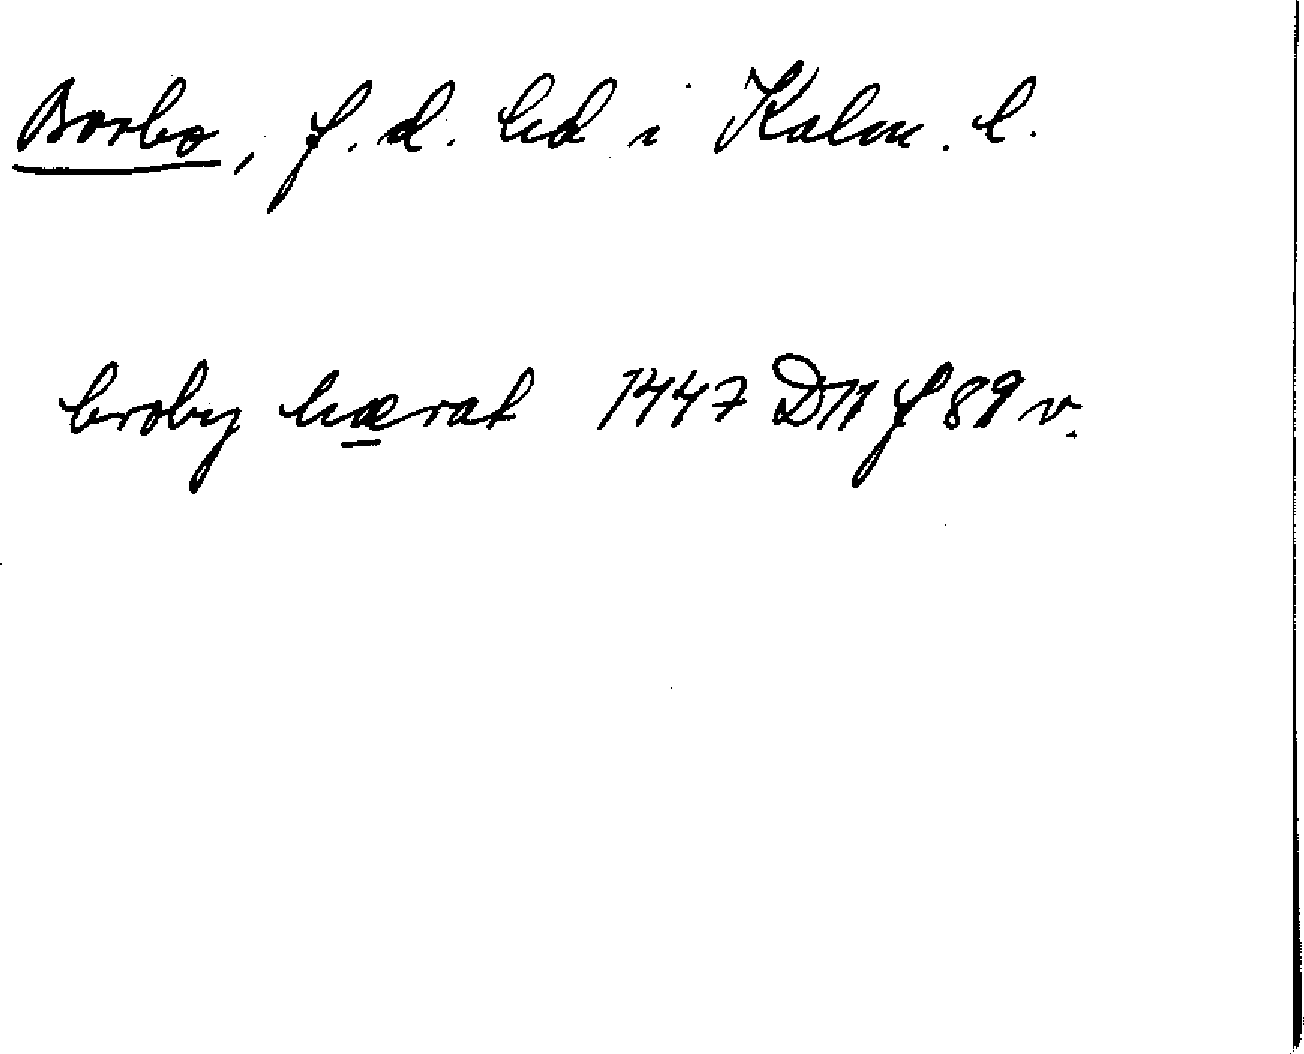 Borbo, f. d. hd i Kalm. l.
broby hærat 1447 D11 f 89 v.